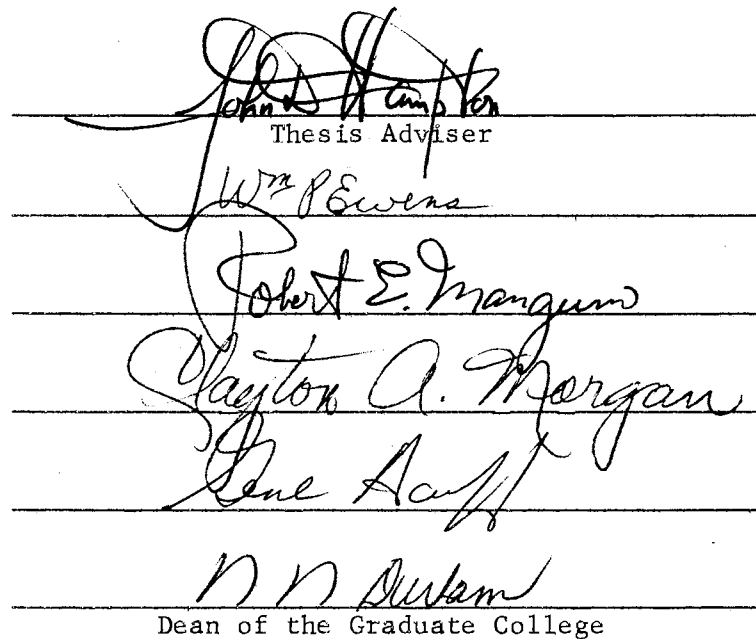 John D Hampton
Thesis Adviser
Wm P Ewens
Robert E. Mangum
Clayton A. Morgan
Gene
N N Durham
Dean of the Graduate College